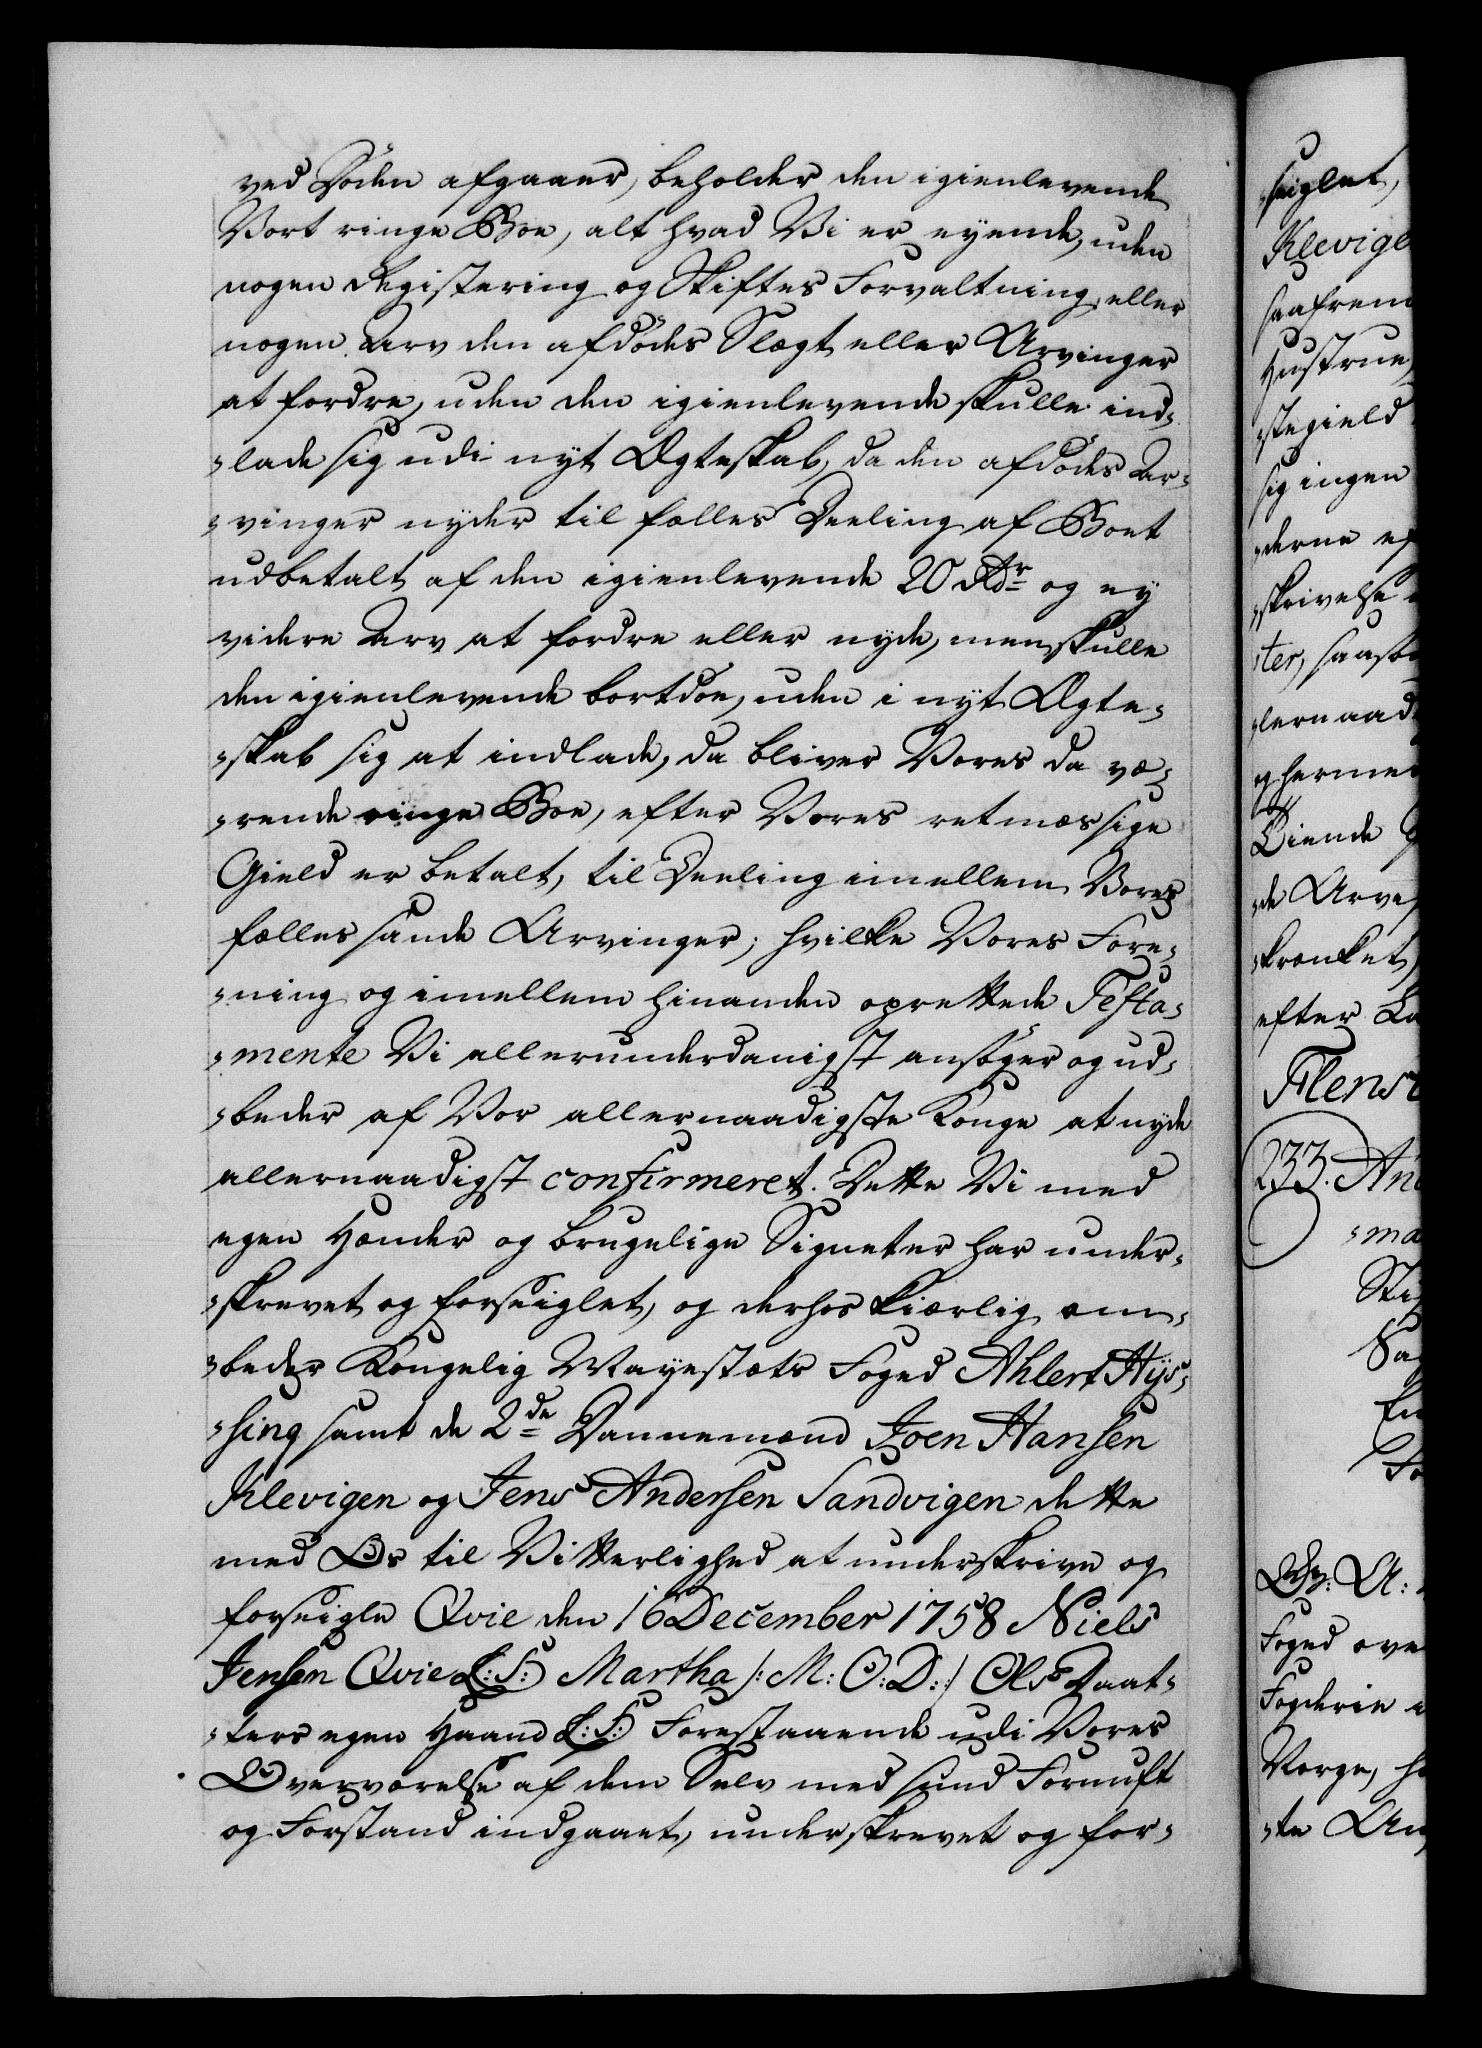 ved Döden afgaaer, beholder den igienlevende
Vort ringe Boe, alt hvad Vi er eyende, uden
nogen Registering og Skiftes Forvaltning, eller
nogen Arv den afdödes Slægt eller Arvinger
at fordre, uden den igienlevende skulle ind-
-lade sig udi nyt Ægteskab, da den afdödes Ar-
-vinger nyder til fælles Deeling af Boet
udbetalt af den igienlevende 20 Rdr og ey
videre Arv at fordre eller nyde, men skulle
den igienlevende bortdöe, uden i nyt Ægte-
-skab sig at indlade, da bliver Vores da væ-
-rende ringe Boe, efter Vores retmæssige
Gield er betalt, til Deeling imellem Vores
fælles sande Arvinger; hvilke Vores Fore-
-ning og imellem hinanden oprettede Testa-
-mente Vi allerunderdanigst ansöger og ud-
-beder af Vor allernaadigste Konge at nyde
allernaadigst confirmeret. Dette Vi med
egen Hænder og brugelige Signeter har under-
-skrevet og forseiglet, og derhos kiærlig om-
-beder Kongelig Mayestæts Foged Ahlert Hys-
-sing samt de 2de Dannemænd Joen Hansen
Klevigen og Jens Andersen Sandvigen dette
med Os til Vitterlighed at underskrive og
forseigle Qvie den 16 December 1758 Niels
Jensen Qvie (L:S:) Martha /: M: O: D: / Ols Daat-
-ters egen Haand (L:S:) Forestaaende udi Vores
Overværelse af dem Selv med sund Fornuft
og Forstand indgaaet, underskrevet og for-
-seiglet,
Klevige
saafrem
Hustrue,
-stegield
sig ingen
-derne ef
-skrivelse
-ter, saaso
-lernaad
og herme
Diende
-de Arve
-krænket,
efter La
Flens
233. An
-ma
Sti
Sa
En
Fo
A:
Foged ove
Fogderie
Norge, h
-te An